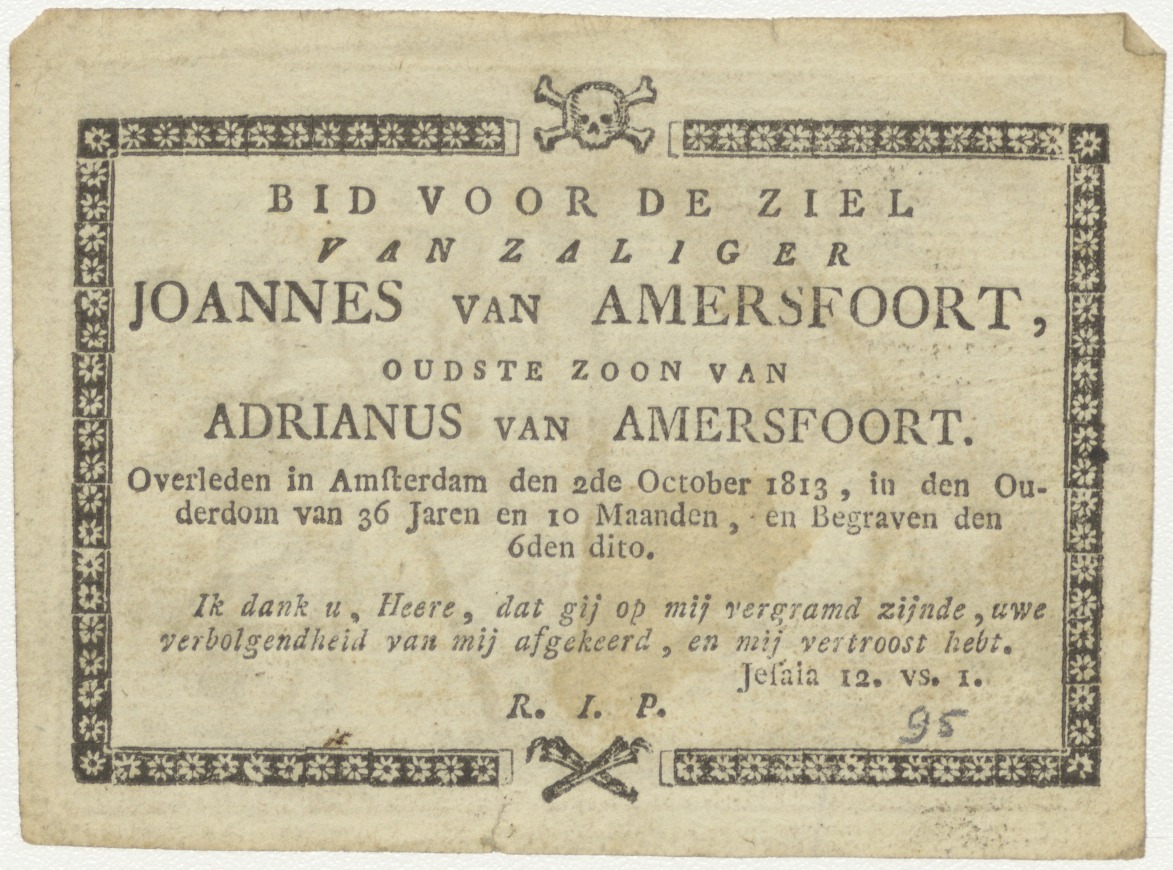 BID VOOR DE ZIEL
VAN ZALIGER
JOANNES VAN AMERSFOORT,
OUDSTE ZOON VAN
ADRIANUS VAN AMERSFOORT.
Overleden in Amſterdam den 2de October 1813, in den Ou-
derdom van 36 Jaren en 10 Maanden, en Begraven den
6den dito.
Ik dank u, Heere, dat gij op mij vergramd zijnde, uwe
verbolgendheid van mij afgekeerd, en mij vertroost hebt.
Jeſaia 12. vs. 1.
R. I. P.
95